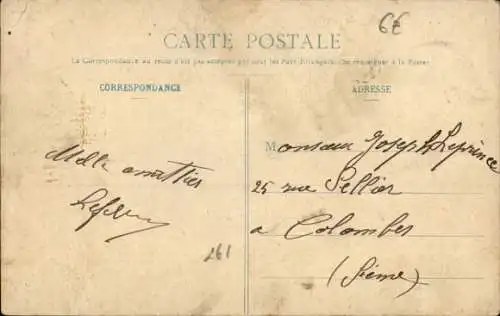 6€
CARTE POSTALE
La Correspondance au recto n'est pas acceptée par tous les Pays Etrangers. (Se renseigner à la Poste)
CORRESPONDANCE
ADRESSE
Monsieur Joseph Leprince
25 rue
a Colombes
(Seine)
Melle
261